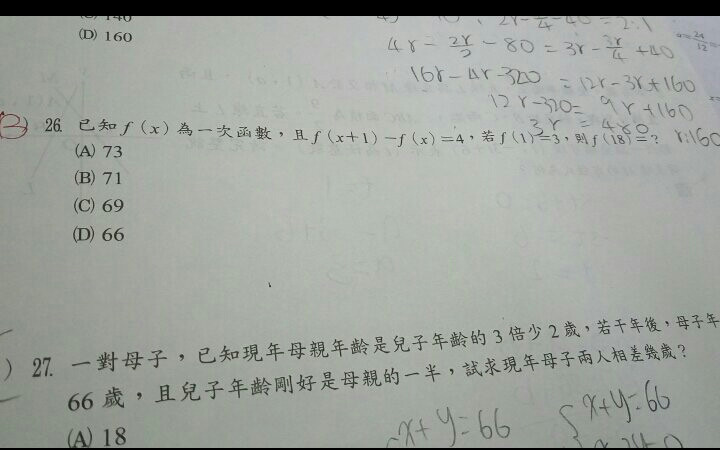 (D) 160
4r - 2r/2 - 80 = 3r - 3r/4 + 40
16r - 4r - 320 = 12r - 3r + 160
12r - 320 = 9r + 160
3r = 480
r=160
26. 已知 f(x) 為一次函數，且 f(x+1)-f(x)=4，若 f(1)=3，則 f(18)=？
(A) 73
(B) 71
(C) 69
(D) 66
27. 一對母子，已知現年母親年齡是兒子年齡的 3 倍少 2 歲，若干年後，母子年
66 歲，且兒子年齡剛好是母親的一半，試求現年母子兩人相差幾歲？
(A) 18
x+y=66
x+y=66